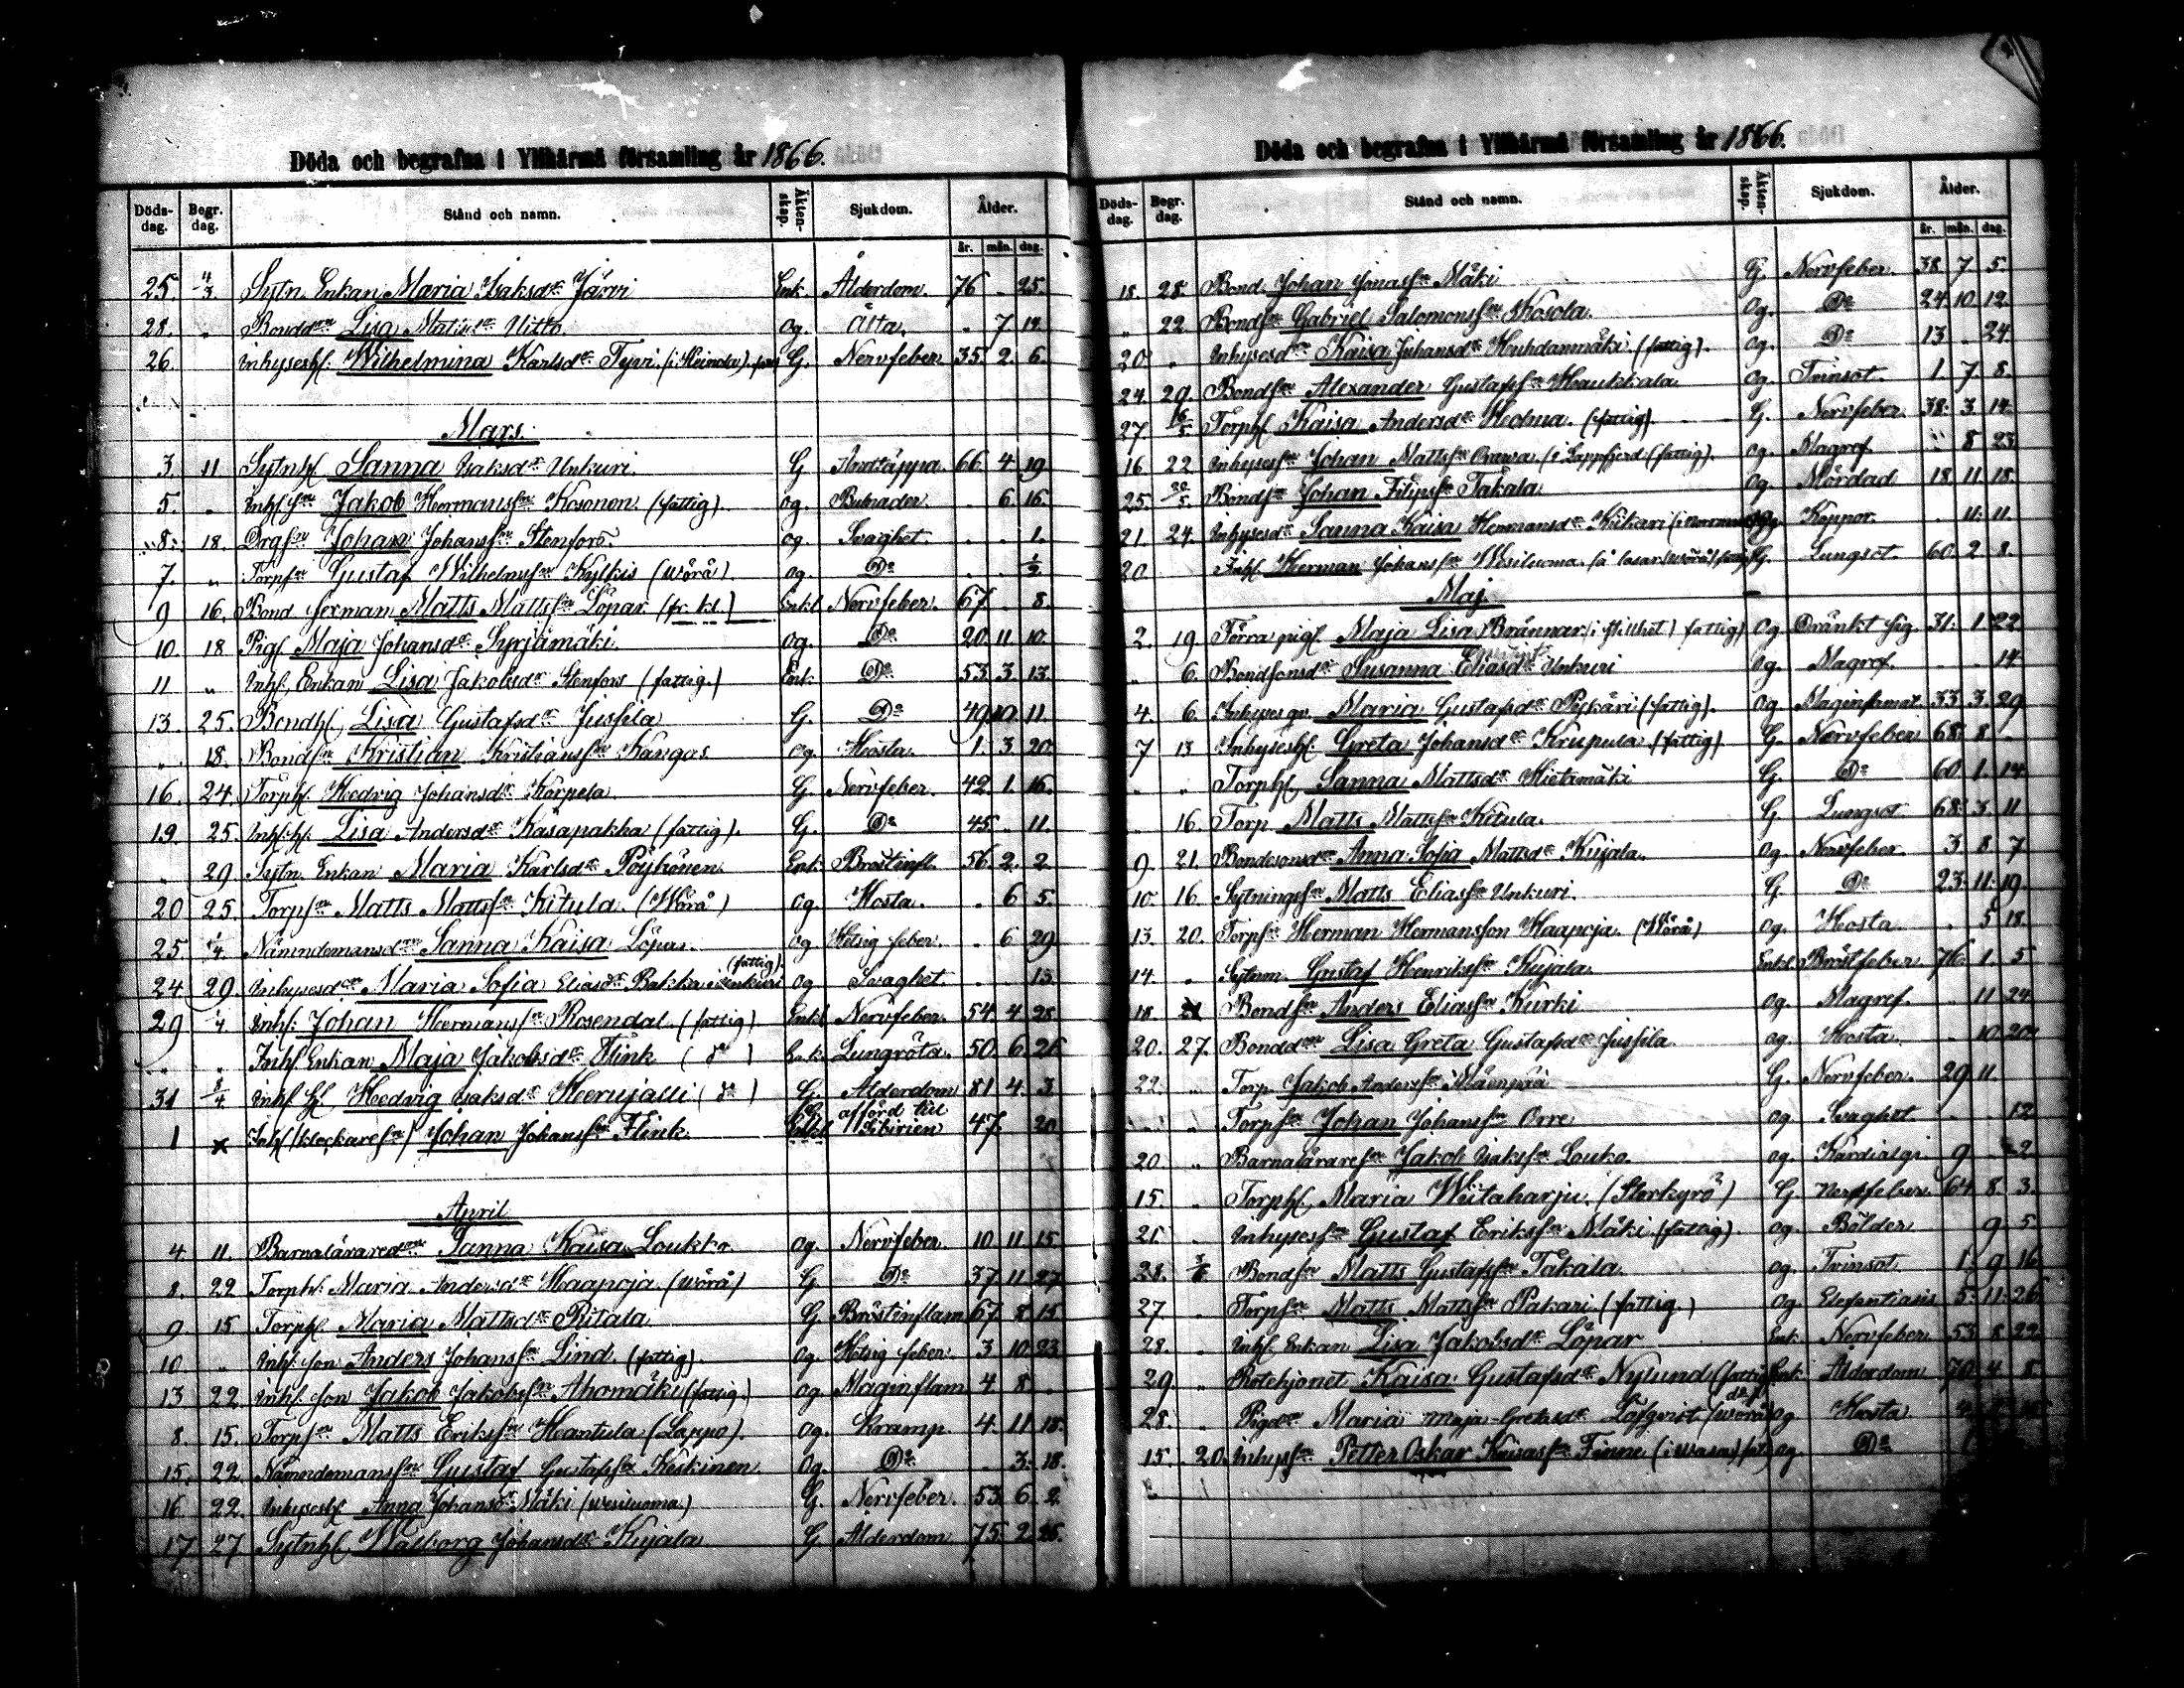 Döda och begrafna i Ylihärmä församling år 1866.
Döds-dag. Begr. dag. Stånd och namn. Äkten-skap. Sjukdom. Ålder.
år. mån. dag.
25. 4/3. Sytn. Enkan Maria Isaksdr Järvi Enk. Ålderdom. 76 . 25.
28. " Bonddrn Lisa Matsdr Uitto og. Älta. . 7 12.
26. Inhyseshf. Wilhelmina Karlsdr Tyni (i Heinola) G. Nervfeber. 35. 2. 6.
Mars.
3. 11 Sytnhf Sanna Isaksdr Unkuri. G Andtäppa. 66. 4 19
5. " Inhfsn Jakob Hermansson Kosonen. (fattig). og. Bulnader. . 6. 16.
8. 18. Drgsn Johan Johanssn Stenfors og. Svaghet. . . 1.
7. " Torpsn Gustaf Wilhelmssn Kylkis (Wörå). og. Do . . 1/2.
9 16. Bond ferman Matts Mattssn Löpar (fr. kl.) Enkl Nervfeber. 67. . 8.
10. 18 Pig. Maja Johansdr Syrjämäki. og. Do 20. 11. 10.
11 " Inhs. Enkan Lisa Jakobsdr Stenfors (fattig.) Enk. Do 53. 3. 13.
13. 25. Bondhf Lisa Gustafsdr Jussila G. Do 49. 10. 11
" 18. Bondsn Kristian Kristianssn Kangas. og. Hosta. 1. 3. 20.
16. 24. Torphf Hedvig Johansdr Karpela. G Nervfeber. 42. 1. 16.
19. 25. Inhshf. Lisa Andersdr Kasapakka (fattig). G. Do 45. . 11.
" 29 Sytn. Enkan Maria Karlsdr Pöyhönen Enk. Bröstinfl. 56. 2. 2.
20 25. Torpsn Matts Mattssn Kitula. (Wörå) og. Hosta. . 6 5.
25. 1/4. Nämndemansdrn Sanna Kaisa Löpar. og. Hetsig feber. . 6 29.
24 29. Inhysesdrn Maria Sofia Eliasdr Bakka i Unkuri (fattig). og Svaghet. . . 13
29 1/4. Inhs: Johan Hermanssn Rosendal. (fattig) Enkl. Nervfeber. 54. 4 28.
" " Inhs Enkan Maja Jakobsdr Flink (do) Enk. Lungröta. 50. 6. 26.
31 8/4 Inhshf Hedvig Isaksdr Herujalli (do) G. Ålderdom 81 4. 3.
1 x Inhs (klockaresn) Johan Johanssn Flink. Enkl afförd till Sibirien 47. . 20.
April
4 11. Barnalärardrn Sanna Kaisa Loukko. og. Nervfeber. 10 11 15
8. 22 Torphf. Maria Andersdr Haapoja (Wörå) G Do 37. 11 27
9. 15 Torphf Maria Mattsdr Ritala G Bröstinflam 67. 8 15
10. " Inhs. son Anders Johanssn Lind. (fattig). og. Hetsig feber. 3 10 23
13 22 Inhs. son Jakob Jakobssn Ahomäki (fattig.) og Maginflam 4. 8 .
8. 15. Torpsn Matts Erikssn Hantula (Lappo). og. Kramp. 4. 11 18.
15. 22. Nämndemanssn Gustaf Gustafssn Keskinen. og. Do . 3. 18.
16. 22. Inhyseshf Anna Johansdr Mäki (Wesiluoma.) G. Nervfeber. 53. 6. 2.
17 27 Sytnhf Walborg Johansdr Kujala G Ålderdom 75. 2. 25.
Döda och begrafna i Ylihärmä församling år 1866.
Döds-dag. Begr. dag. Stånd och namn. Äkten-skap. Sjukdom. Ålder.
år. mån. dag.
18. 28. Bond Johan Jonassn Mäki G. Nervfeber. 38. 7. 5.
" 22. Bondsn Gabriel Salomonssn Kosola. og. Do 24. 10. 12.
20 " Inhysesdrn Kaisa Johansdr Huhdanmäki. (fattig). og. Do 13 . 24.
24. 29. Bondsn Alexander Gustafssn Haukkala. og Tvinsot. 1. 7. 8.
27. Torphf Kaisa Andersdr Hedma. (fattig). G. Nervfeber 38. 3. 14.
16. 22. Inhysessn Johan Mattssn Orawa. (i Lappfjerd (fattig). og. Magref " 8 23
25. 20/5. Bondsn Johan Filipssn Takala og Mördad 18. 11. 18.
21. 24. Inhysesdr Sanna Kaisa Hermansdr Kiikari og Koppor. . 11. 11.
20 Inhs. Herman Johanssn Wesiluoma. (å lasar. Wörå) fattig G. Lungsot. 60. 2 8.
Maj.
2. 19 Förra pig. Maja Lisa Brännar (fattig) og Dränkt sig. 31. 1 22
" 6. Bondsonsdr Susanna Eliasdr Unkuri og. Magref. . . 14
4. 6. Inhyses qv. Maria Gustafsdr Pyhäri (fattig). og. Maginflamat. 33. 3. 29.
7 13 Inhyseshf. Greta Johansdr Krupula. (fattig) G. Nervfeber 68. 8 .
" " Torphf Sanna Mattsdr Hietamäki G. Do 60. 1. 14
" 16. Torp. Matts Mattssn Kitula. G. Lungsot 68. 3. 11
9. 21. Bondesonsdr Anna Sofia Mattsdr Kujala. og. Nervfeber. 3. 8. 7
10. 16 Sytningssn Matts Eliassn Unkuri. G. Do 23. 11. 19.
13. 20. Torpsn Herman Hermansson Haapoja. (Wörå) og. Hosta. . 5 18.
14. " Sytnm. Gustaf Henrikssn Kujala. Enkl. Bröstfeber. 76. 1. 5
18. Bondsn Anders Eliassn Kurki og. Magref. . 11 24
20. 27. Bonddrn Lisa Greta Gustafsdr Jussila. og. Hosta. . 10. 20
22. " Torp Jakob Anderssn Mäenpää G. Nervfeber. 29 11.
" " Torpsn Johan Johanssn Orre og. Svaghet . . 12
20. " Barnalärarsn Jakob Isakssn Louko. og. Kardialgi 9 . 2.
15. " Torphf Maria Wiitaharju. (Storkyrö) G Nervfeber. 64 8. 3.
21. Inhysessn Gustaf Erikssn Mäki (fattig) og. Bölder 9. 5
28. 3/6 Bondsn Matts Gustafssn Takala. og. Tvinsot. 1. 9 16
27 " Torpsn Matts Mattssn Pakari. (fattig.) og. Elefantiasis 5. 11. 26
28. " Inhs. Enkan Lisa Jakobsdr Löpar Enk. Nervfeber 53 8 22.
29 " Rotehjonet Kaisa Gustafsdr Nylund (fattig) Enk. Ålderdom 70. 4 8
28. " Pigdr Maria Maja-Gretasdr Löfqvist (Wörå) do og Hosta 4.
15. 20. Inhyssn Petter Oskar Kaisassn Finne (i Wasa) fat. og Do